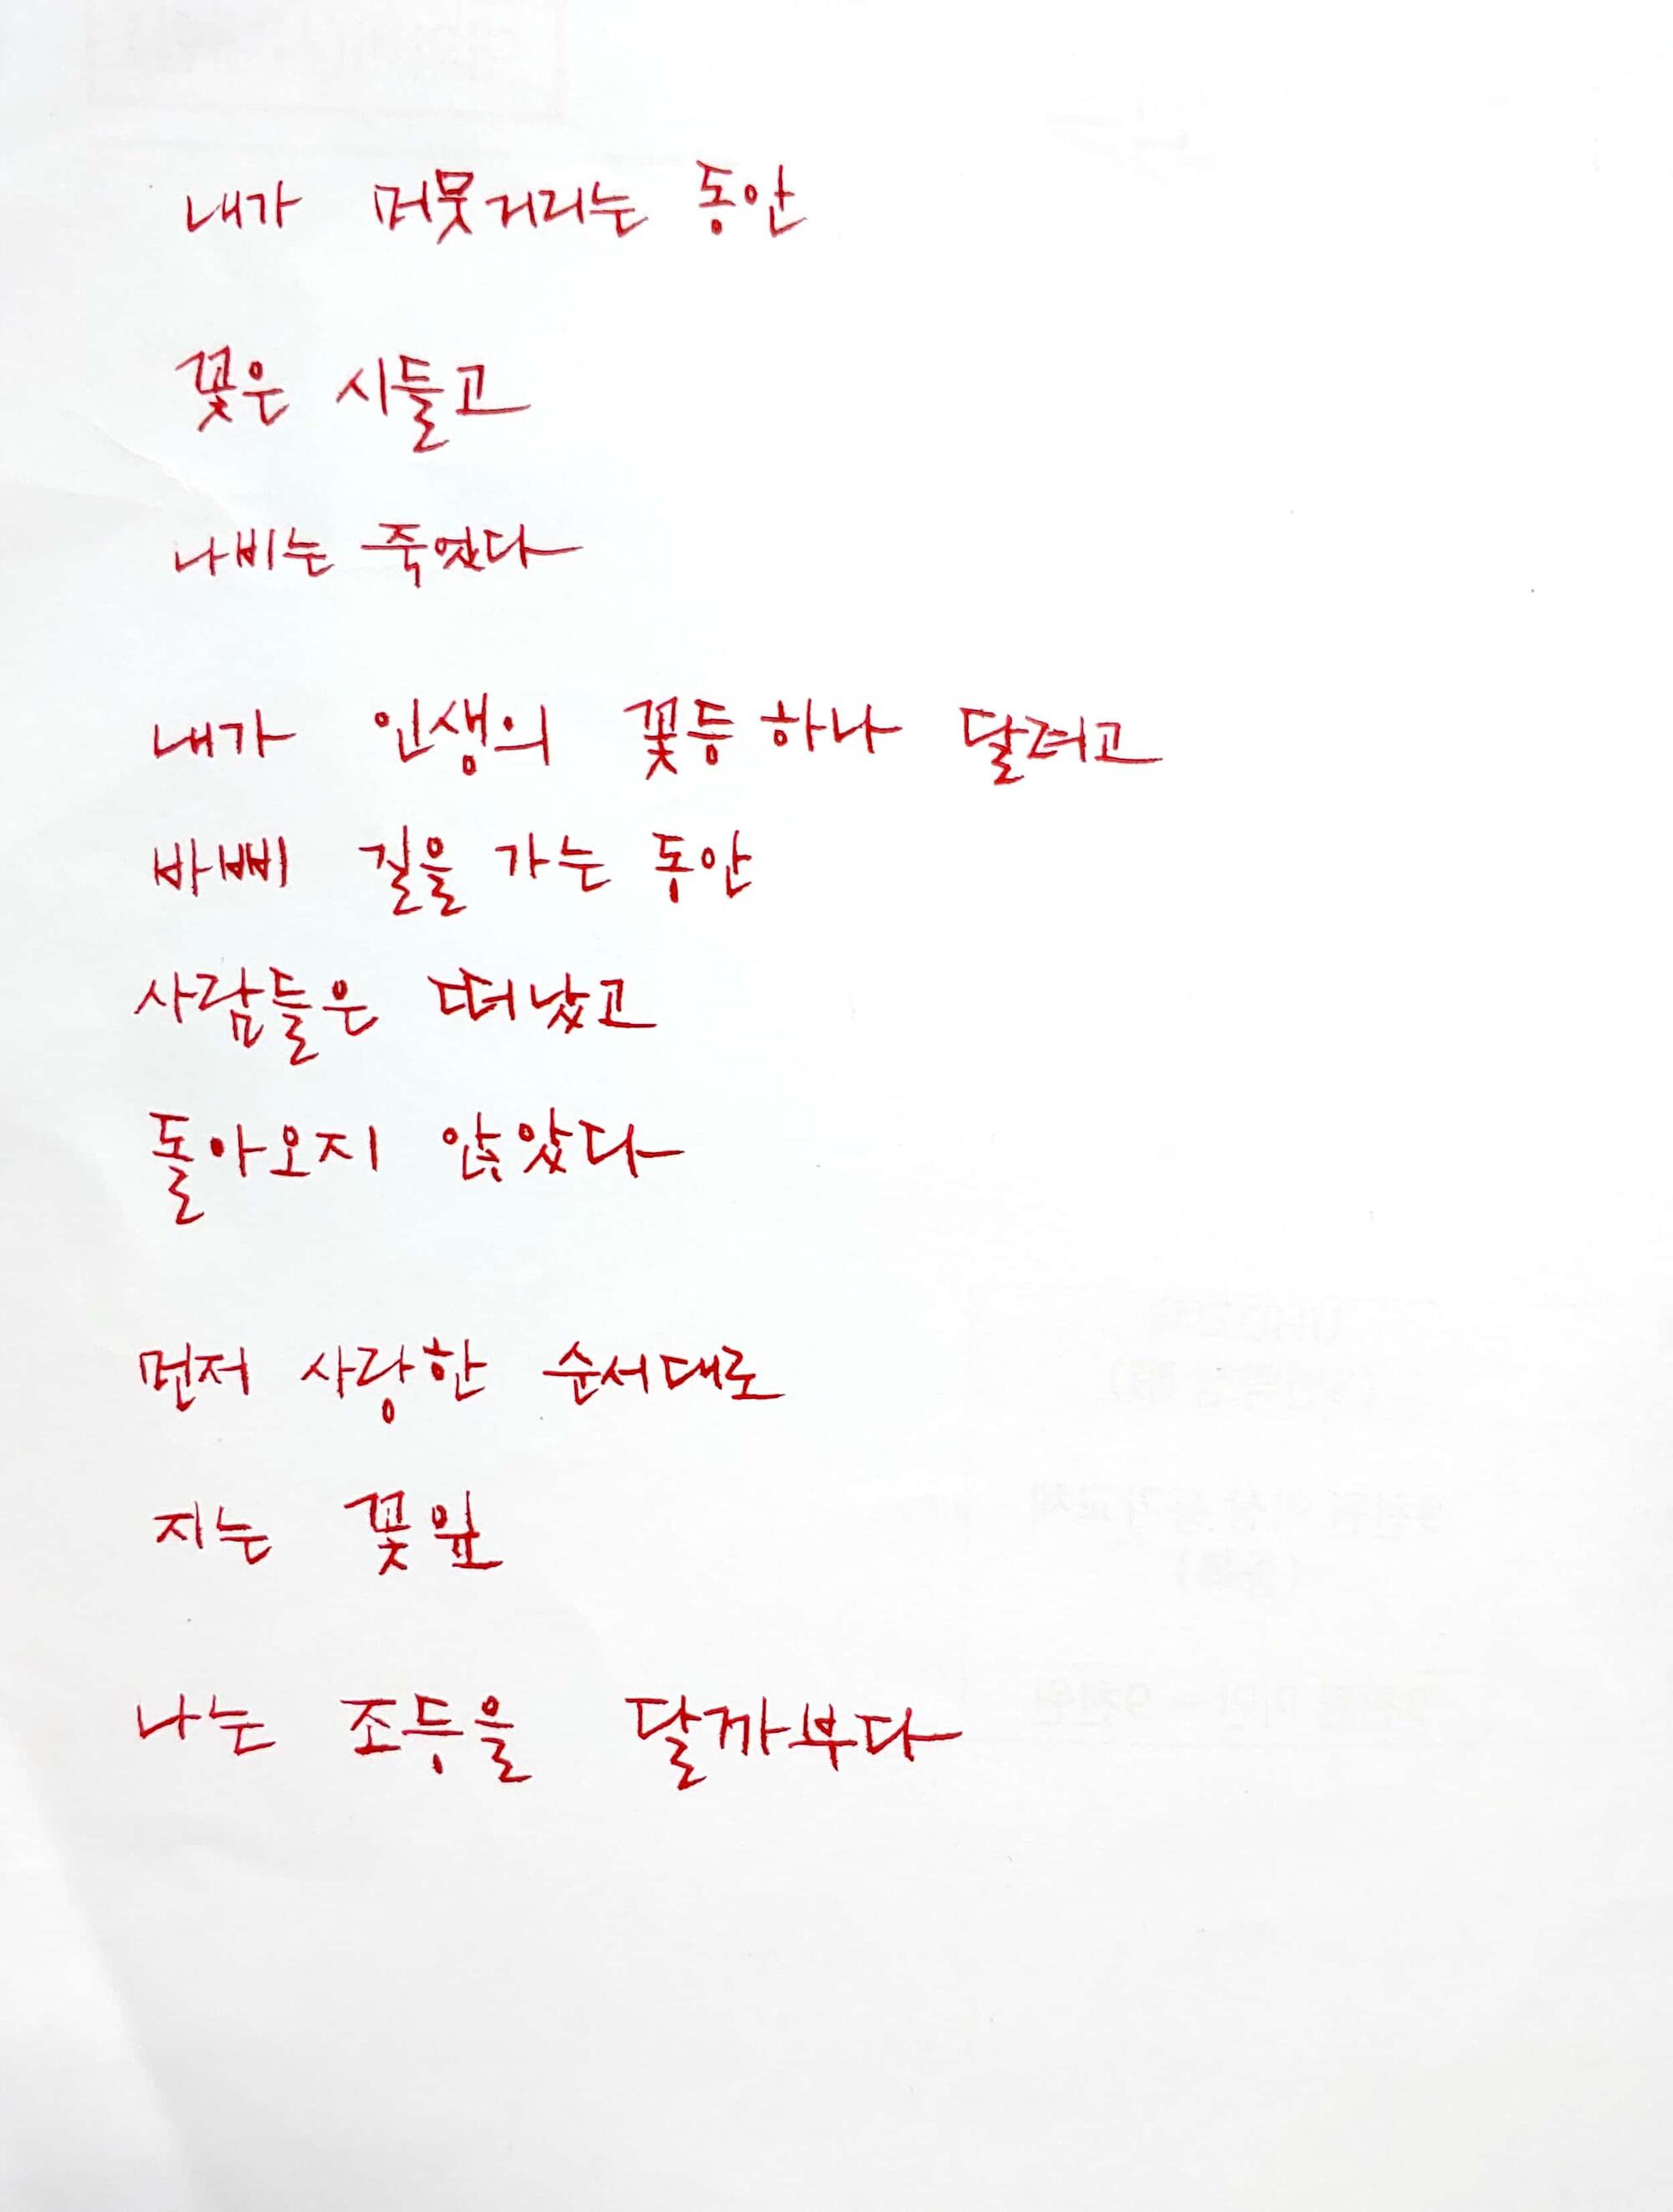 내가 머뭇거리는 동안
꽃은 시들고
나비는 죽었다
내가 인생의 꽃등 하나 달려고
바삐 길을 가는 동안
사람들은 떠났고
돌아오지 않았다
먼저 사랑한 순서대로
지는 꽃잎
나는 조등을 달까부다